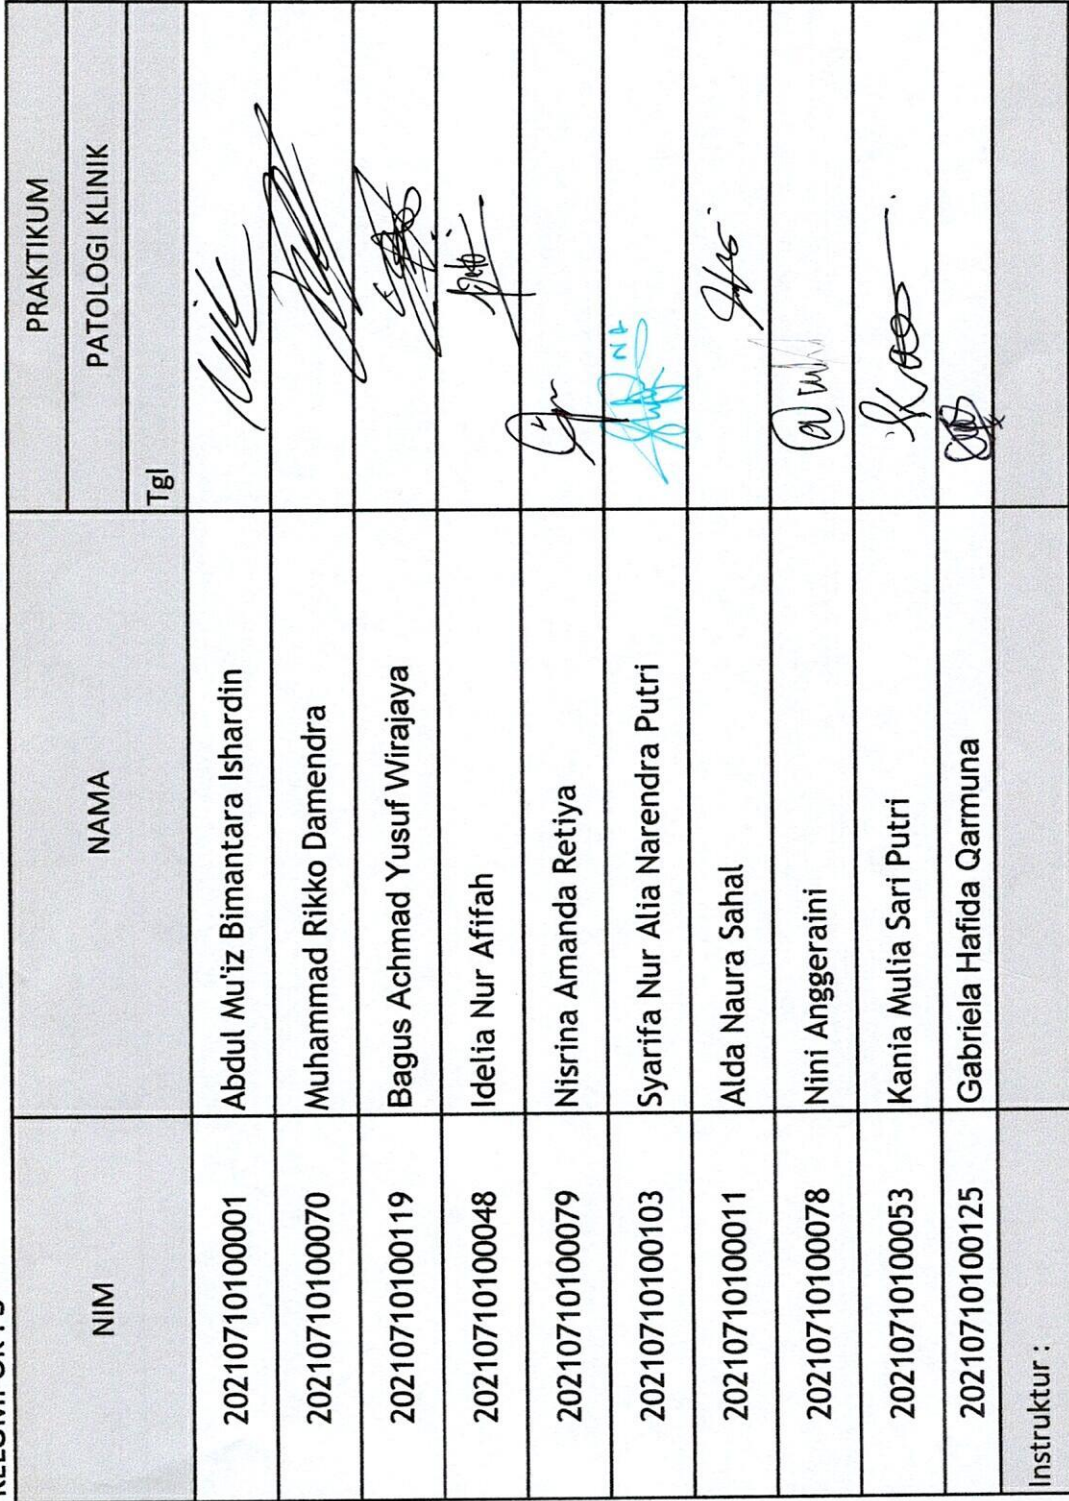 NIM NAMA PRAKTIKUM
PATOLOGI KLINIK
Tgl
202107101001 Abdul Mu'iz Bimantara Ishardin
20210710100070 Muhammad Rikko Damendra
20210710100119 Bagus Achmad Yusuf Wirajaya
20210710100048 Idelia Nur Afifah
20210710100079 Nisrina Amanda Retiya
20210710100103 Syarifa Nur Alia Narendra Putri
20210710100011 Alda Naura Sahal
20210710100078 Nini Anggeraini
20210710100053 Kania Mulia Sari Putri
20210710100125 Gabriela Hafida Qarmuna
Instruktur :